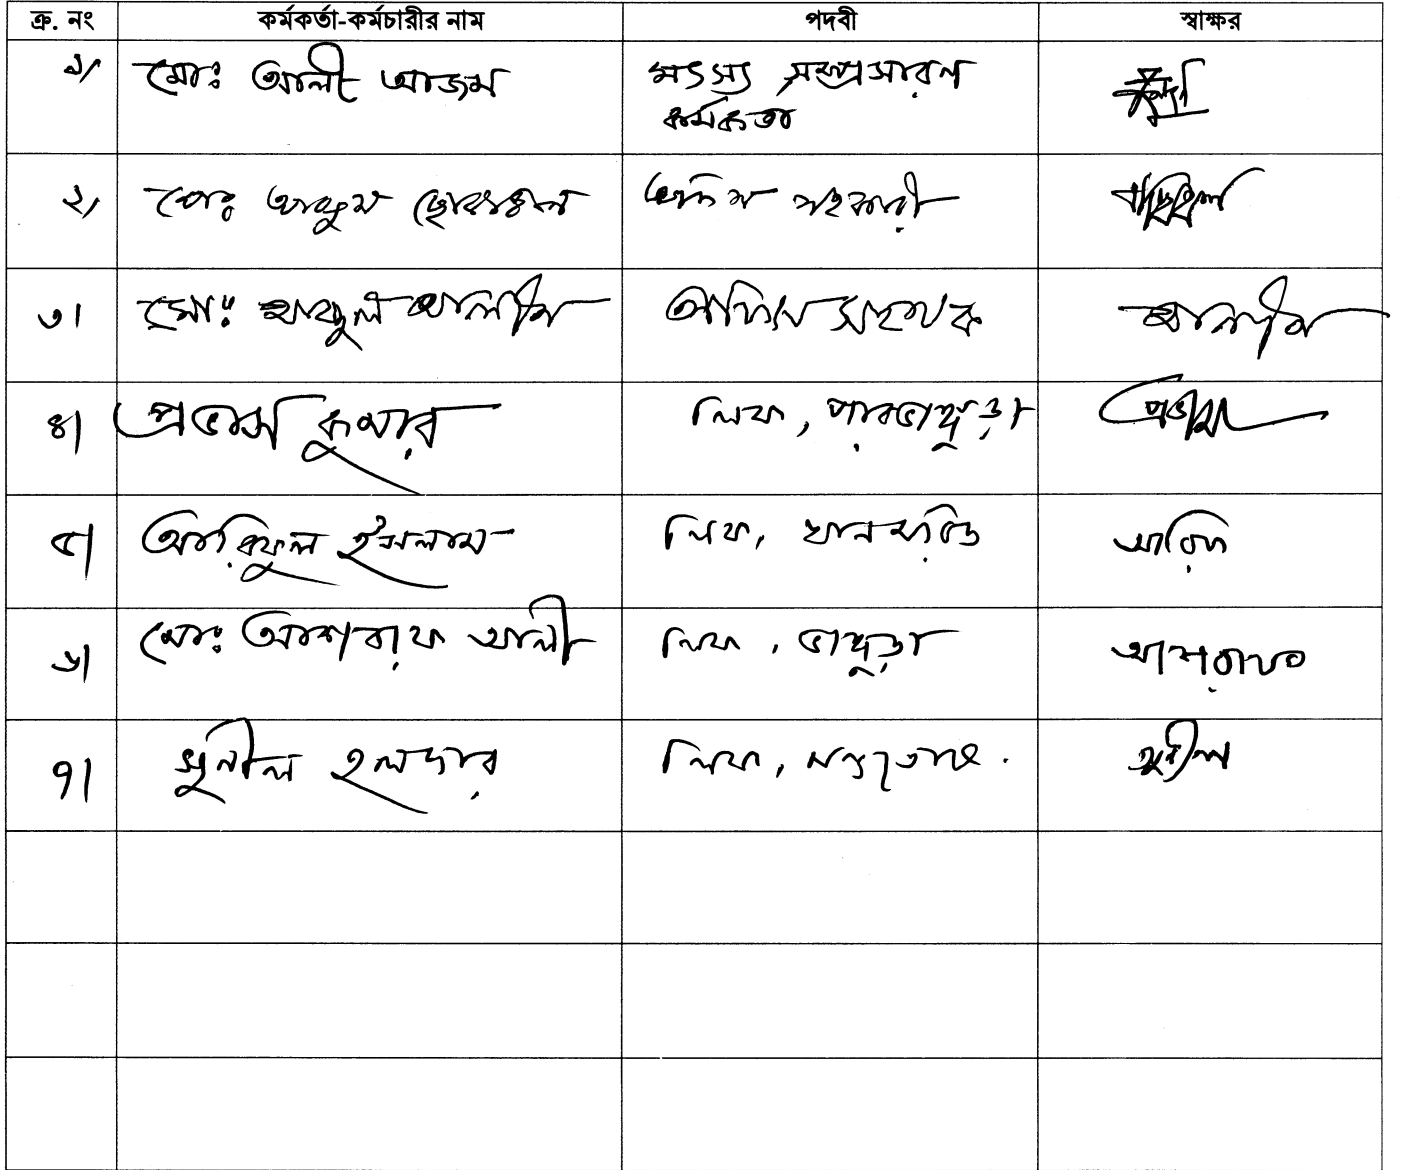 ক্র. নং কর্মকর্তা-কর্মচারীর নাম পদবী স্বাক্ষর
১/ মোঃ আলী আজম মৎস্য সম্প্রসারণ
কর্মকর্তা
২/ মোঃ অফিস সহকারী
৩। মোঃ আব্দুল আলীম অফিস সহায়ক আলীম
৪। প্রভাস কুমার লিফ, পারভাঙ্গুড়া প্রভাস
৫। আরিফুল ইসলাম লিফ, খানমরিচ আরিফ
৬। মোঃ আশরাফ আলী লিফ, ভাঙ্গুড়া আশরাফ
৭। সুনীল হলদার লিফ, সুনীল